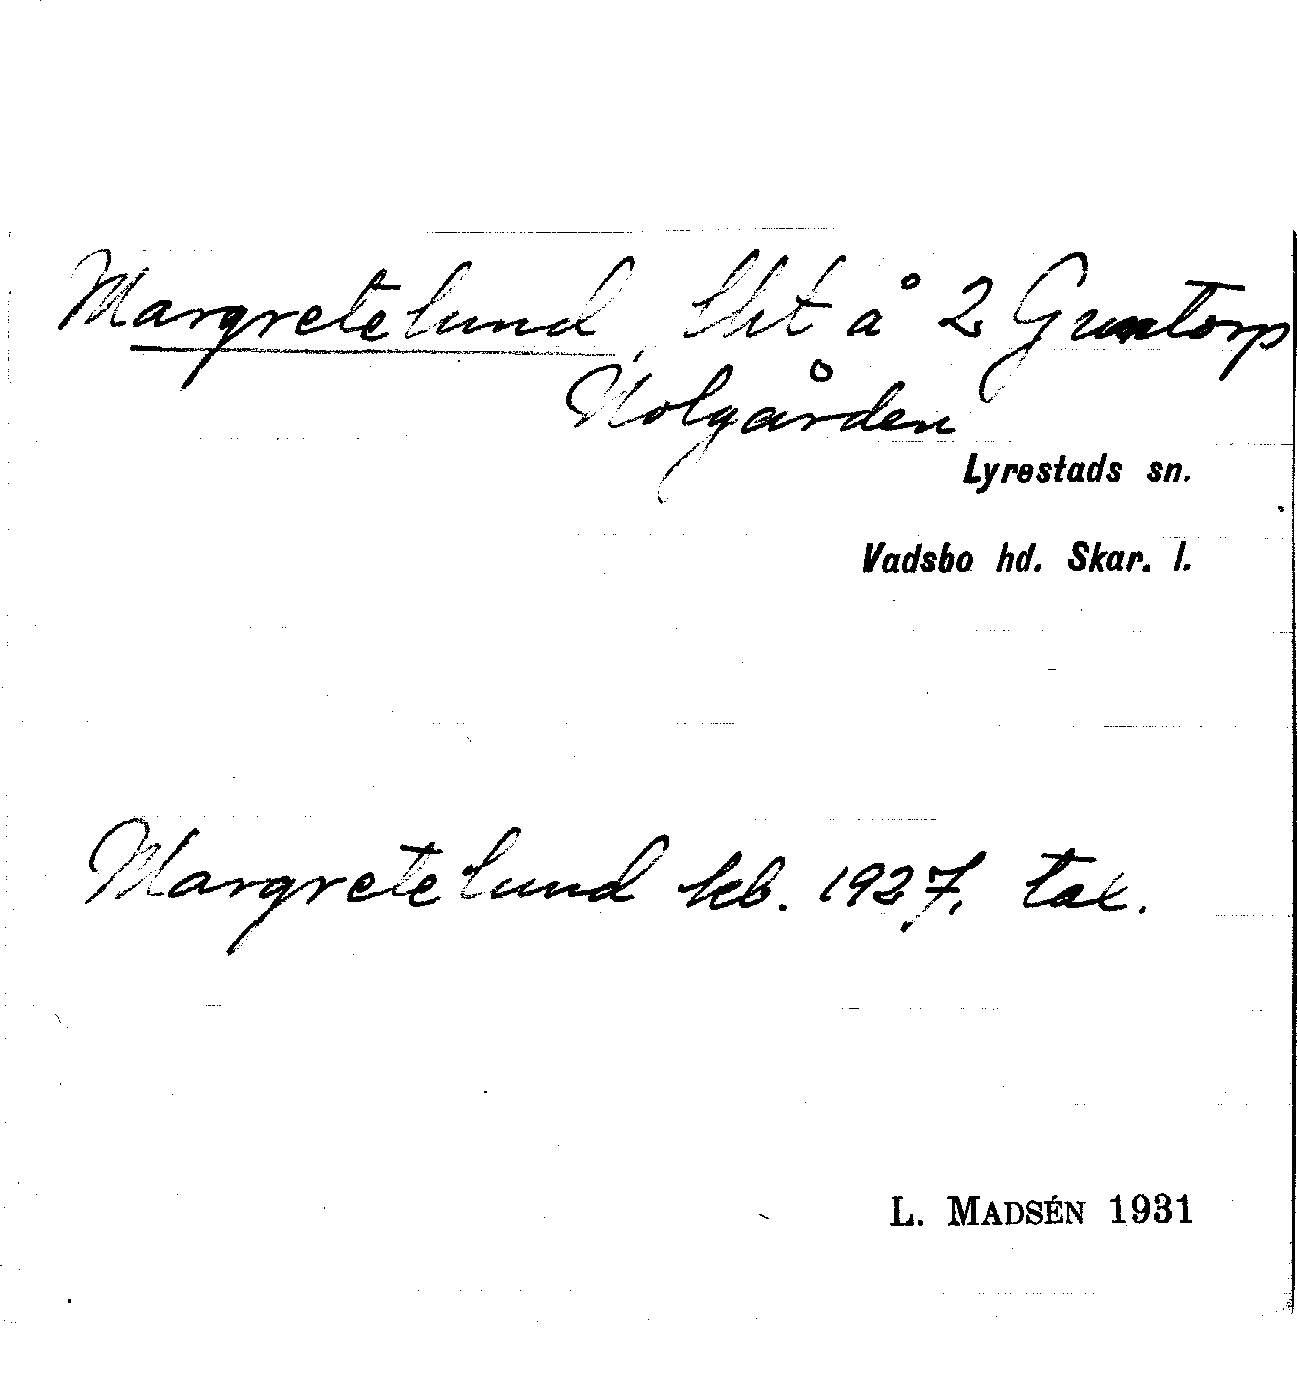 Margretelund, lht å 2 Guntorp
Nolgården
Lyrestads sn.
Vadsbo hd. Skar. l.
Margretelund kb. 1927, tax.
L. MADSÉN 1931